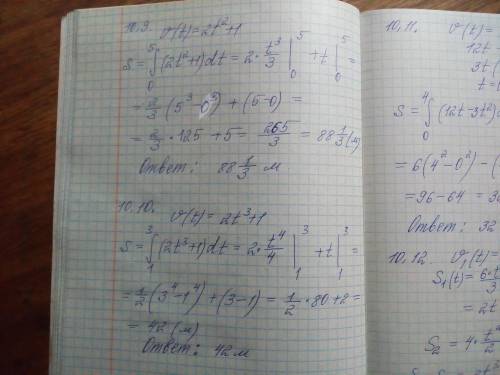 10.9. v(t)=2t²+1
S = ∫₀⁵ (2t²+1)dt = 2·t³/3 |₀⁵ + t |₀⁵ =
= 2/3 (5³-0³) + (5-0) =
= 2/3 · 125 + 5 = 265/3 = 88 1/3 (м)
Ответ: 88 1/3 м
10.10. v(t) = 2t³+1
S = ∫₁³ (2t³+1)dt = 2·t⁴/4 |₁³ + t |₁³ =
= 1/2 (3⁴-1⁴) + (3-1) = 1/2 · 80 + 2 =
= 42 (м)
Ответ: 42 м
10.11. v(t) =
12t
3t(
t=
S = ∫₀⁴ (12t-3t²)
= 6(4²-0²) - (
= 96-64 = 3
Ответ: 32
10.12 v₁(t) =
S₁(t) = 6·t/3
= 2t
S₂ = 4·t²/2